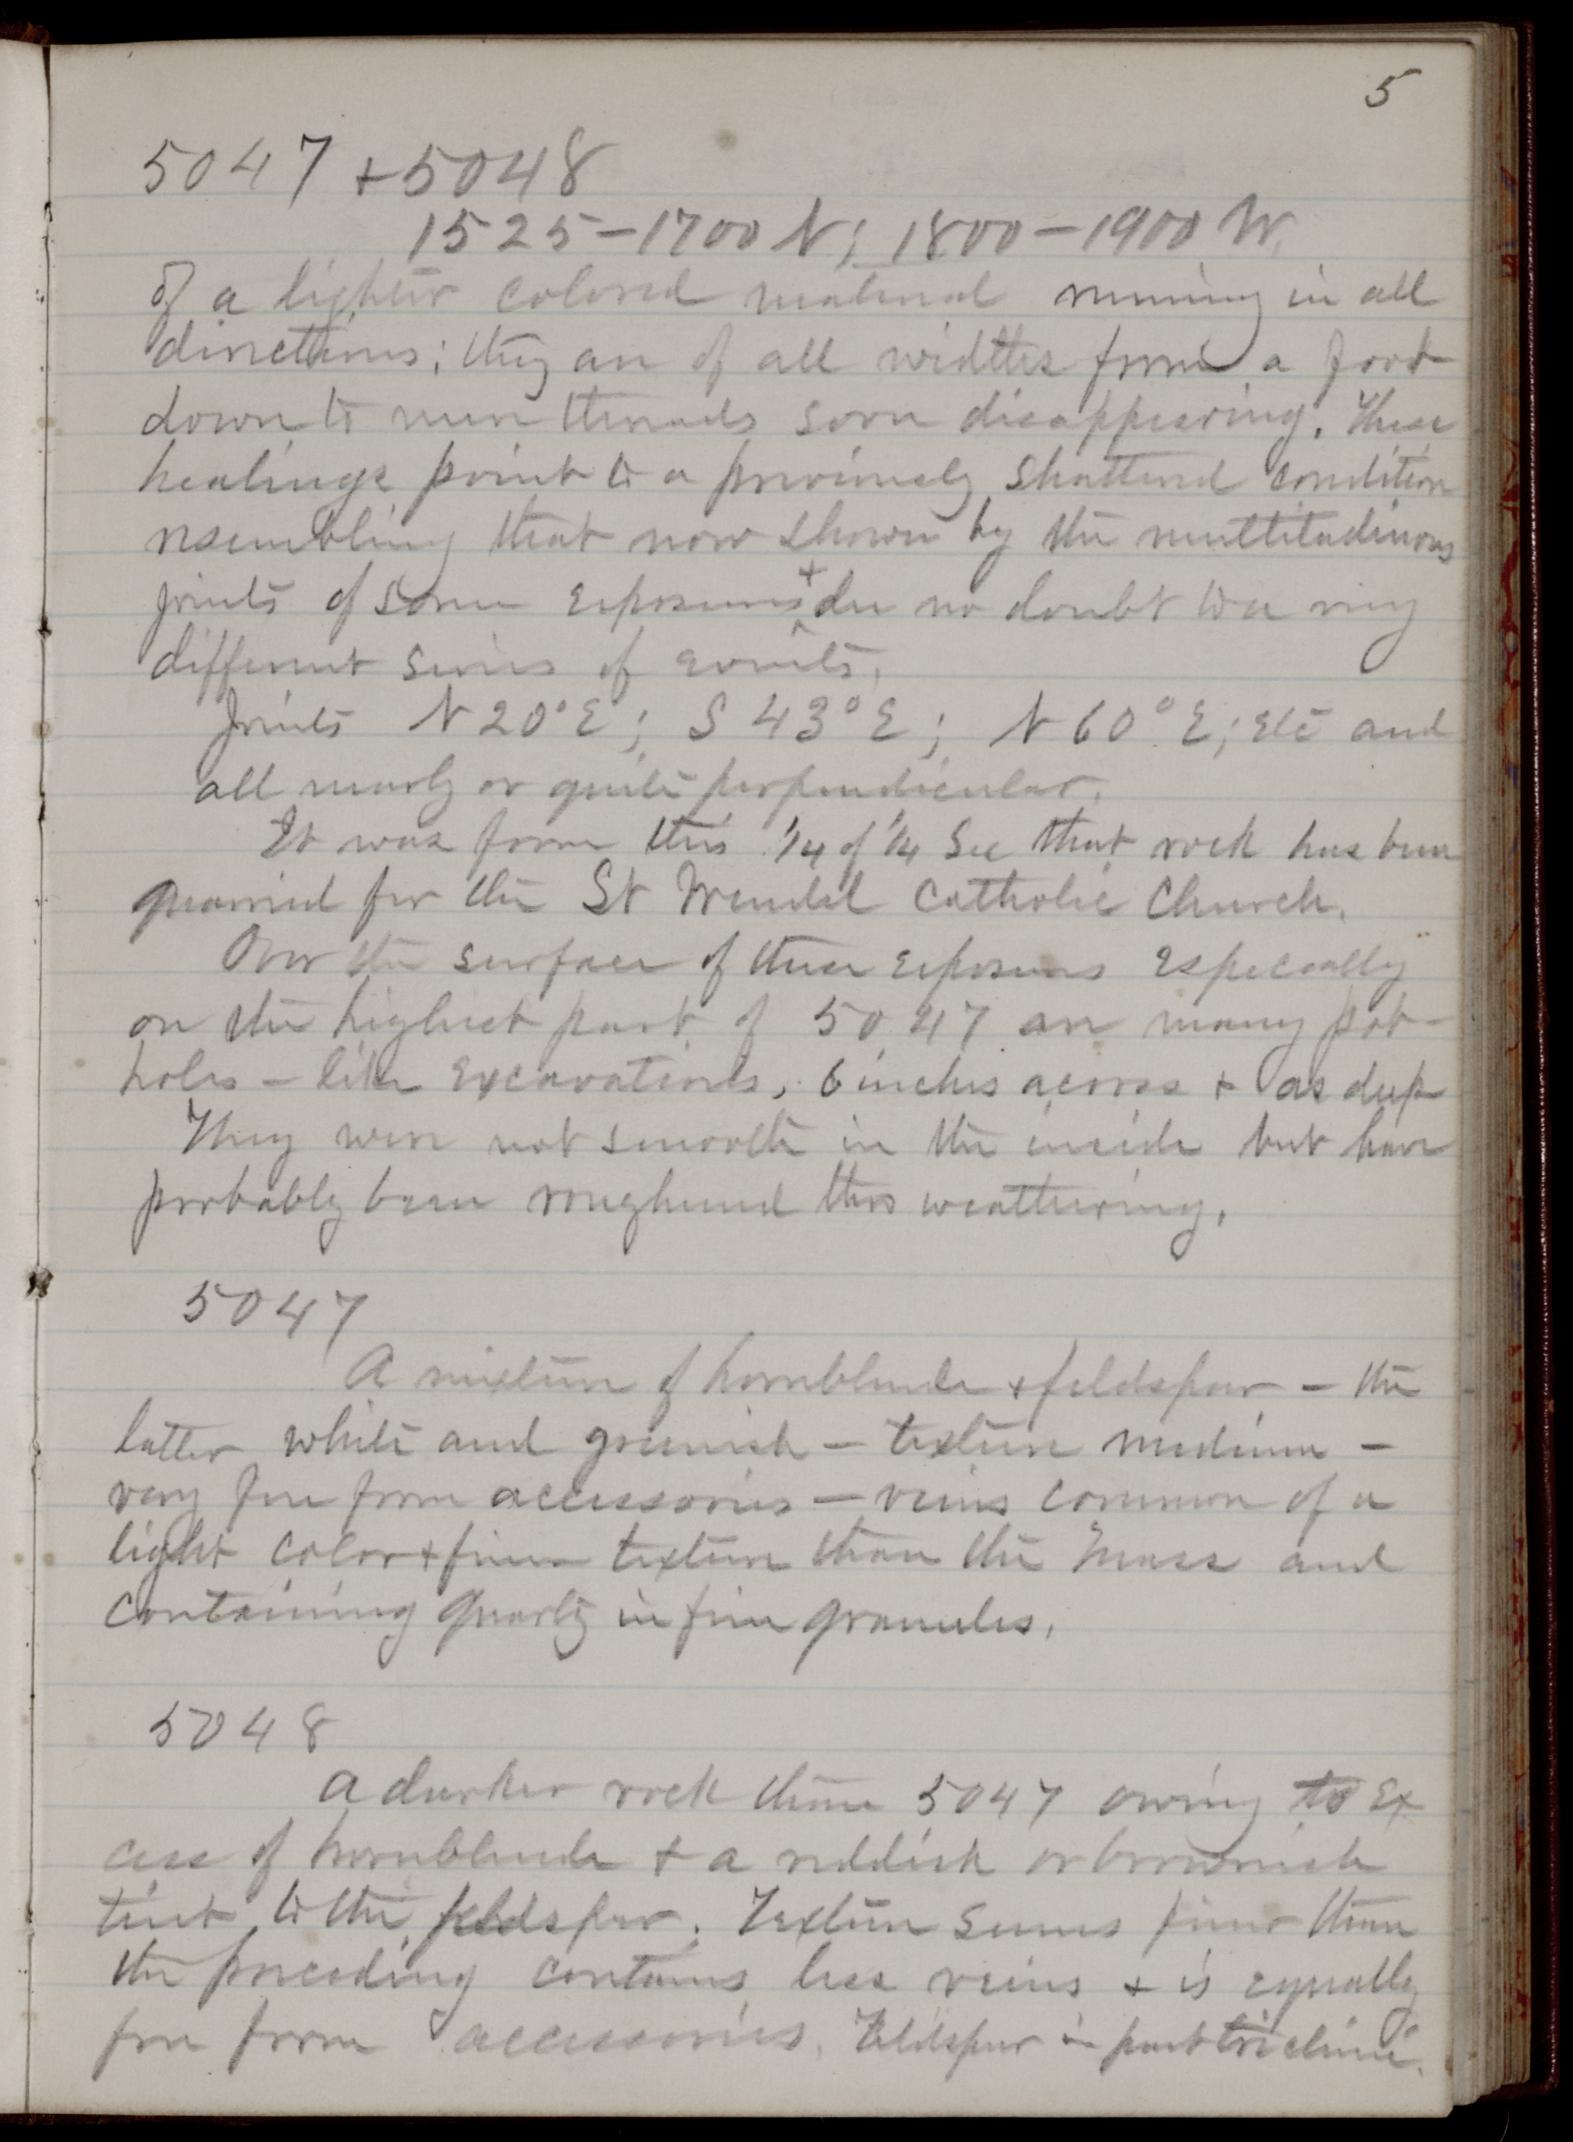 5
5047 + 5048
1525-1700 N; 1800-1900 W.
of a lighter colored material running in all
directions; they are of all widths from a foot
down to mere threads soon disappearing. These
healings point to a previously shattered condition
resembling that now shown by the multitudinous
joints of some exposures + due no doubt to a very
different series of events.
Joints N 20° E; S 43° E; N 60° E; etc and
all nearly or quite perpendicular.
It was from this 1/4 of 1/4 Sec that rock has been
quarried for the St Wendel Catholic Church.
Over the surface of these exposures especially
on the highest part of 5047 are many pot-
holes - like excavations, 6 inches across + as deep
They were not smooth in the inside but have
probably been roughened thro weathering.
5047
A mixture of hornblende + feldspar - the
latter white and greenish - texture medium -
very free from accessories - veins common of a
light color + finer texture than the mass and
containing quartz in fine granules.
5048
A darker rock than 5047 owing to ex
cess of hornblende + a reddish or brownish
tint to the feldspar. Texture seems finer than
the preceding contains less veins + is equally
free from accessories. Feldspar in part triclinic.